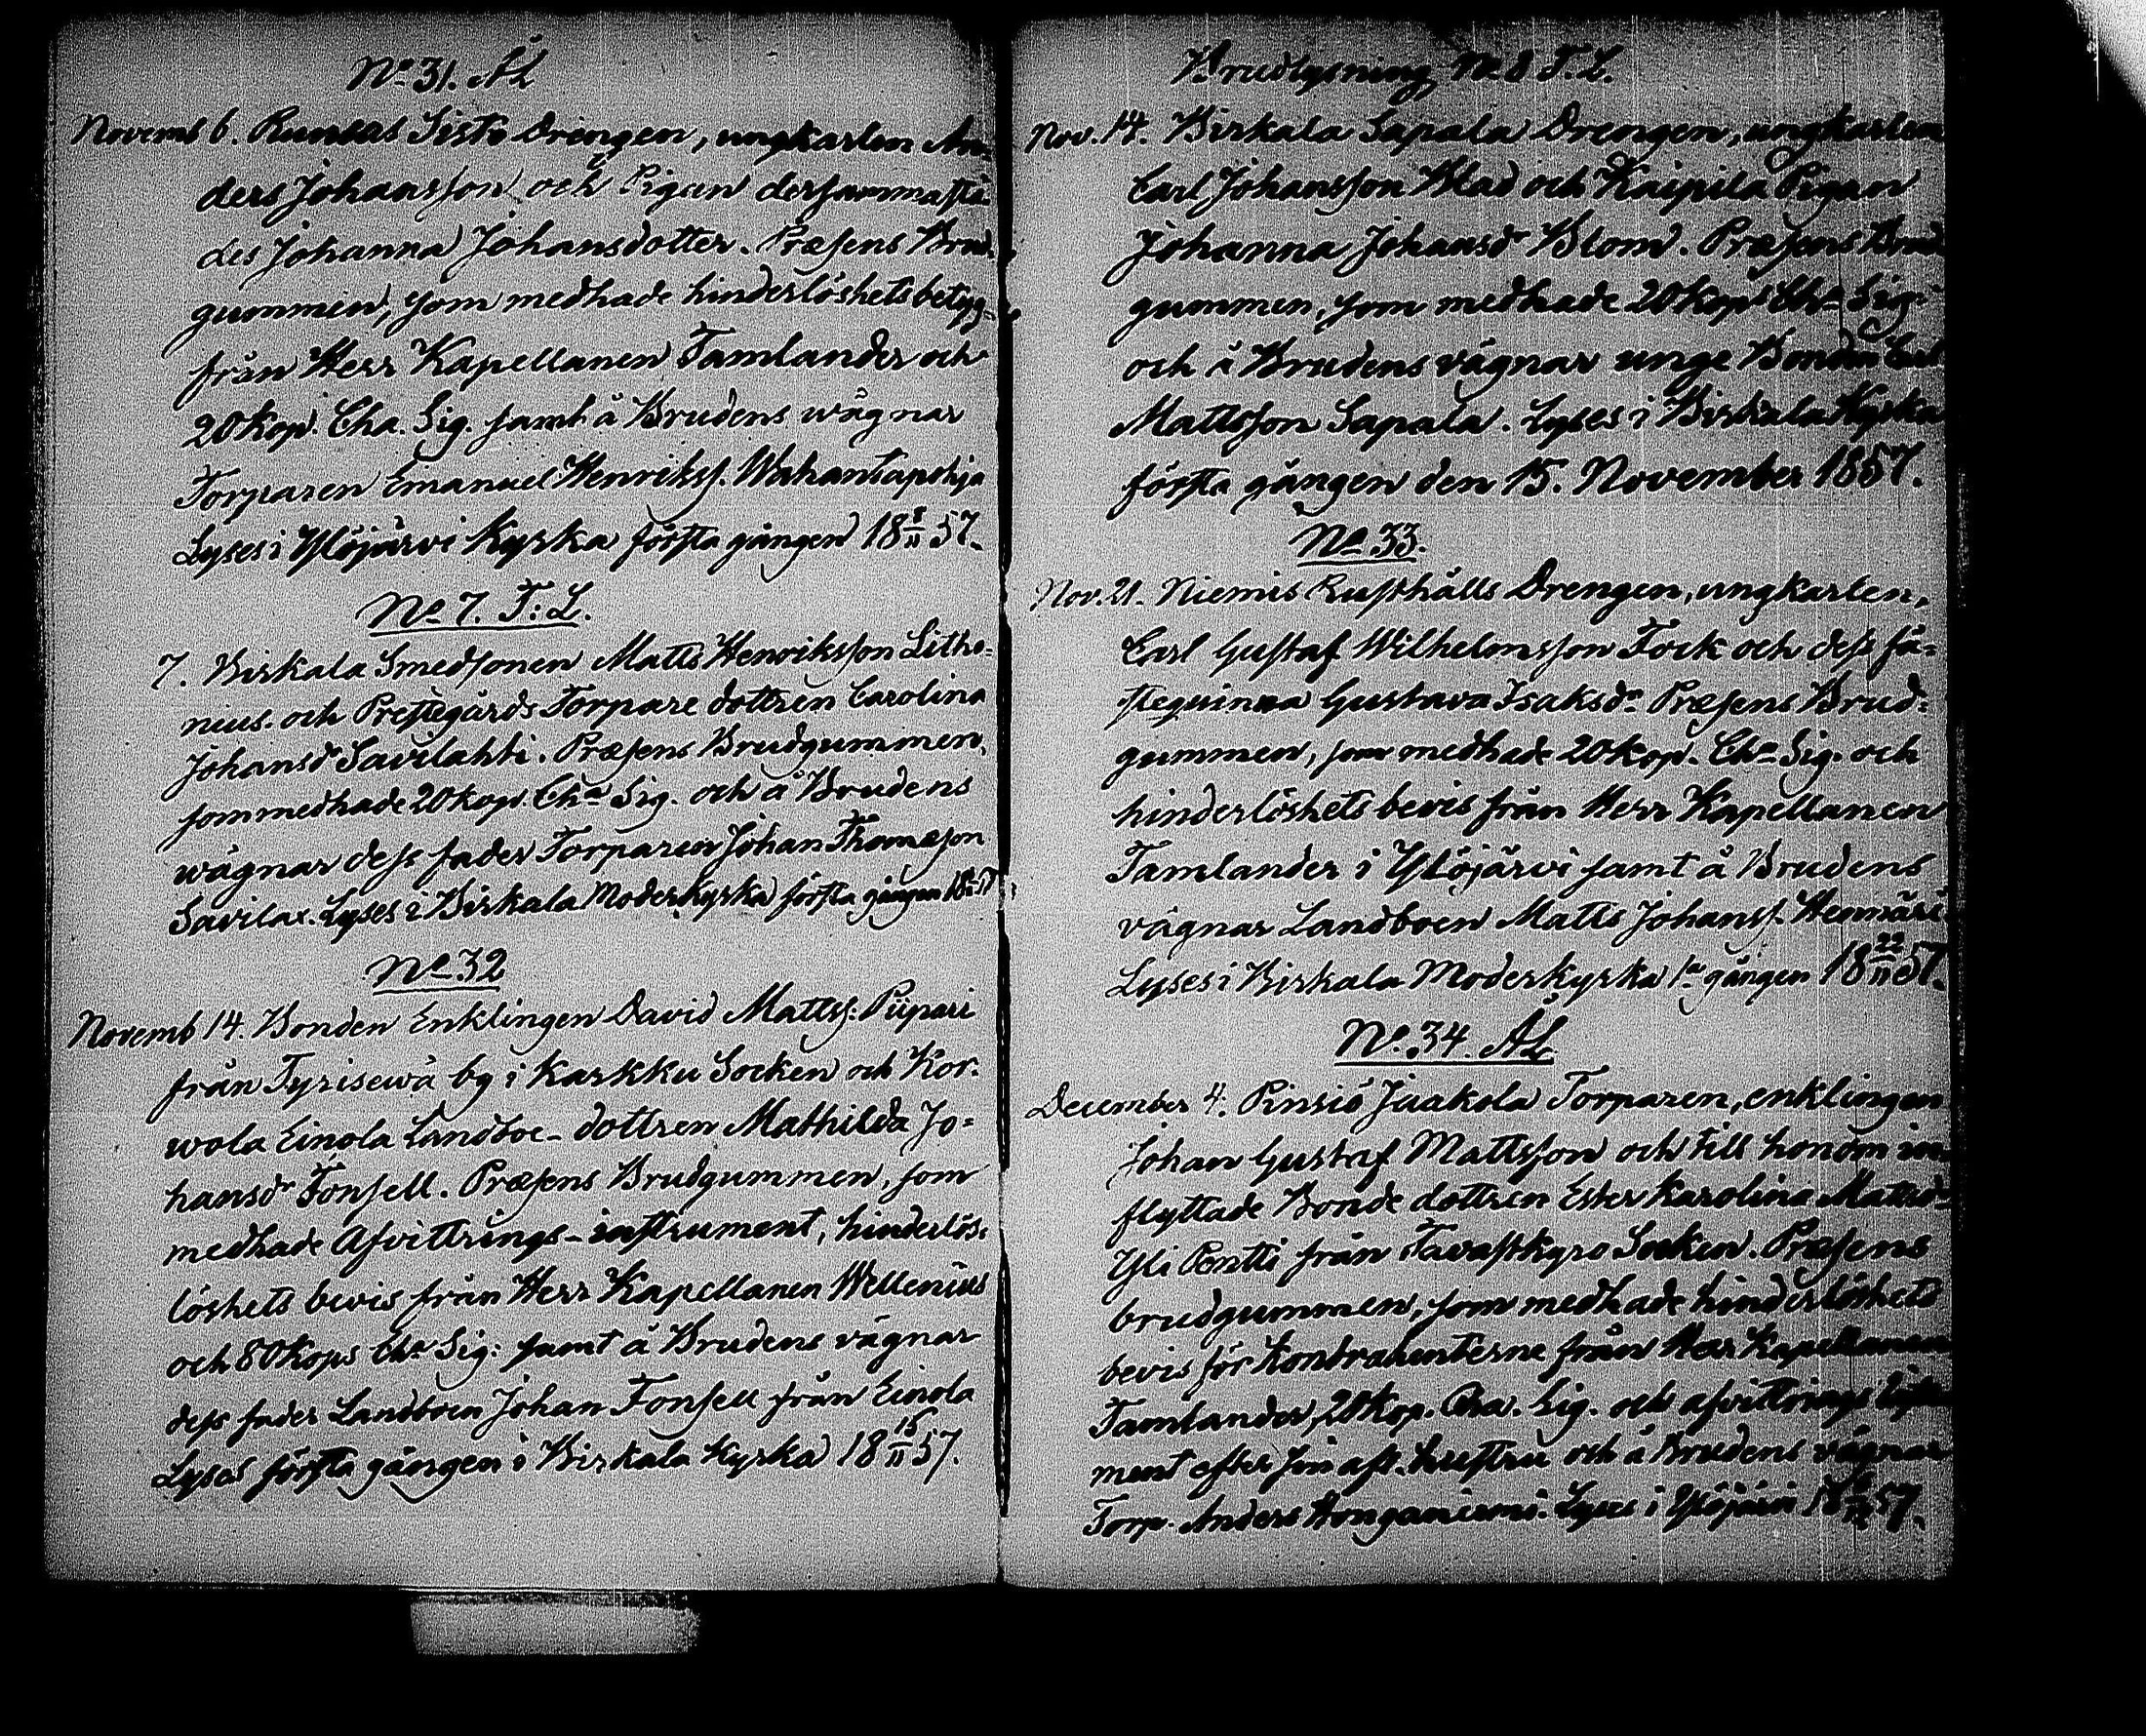 No 31. ÅL
Novemb 6. Runsas Sisto Drengen, ungkarlen An-
ders Johansson och Pigan dersammastä-
des Johanna Johansdotter. Præsens Brud-
gummen, som medhade hinderlöshetsbetyg
från Herr Kapellanen Tamlander och
20 kop. Cha. Sig. samt å Brudens wägnar
Torparen Emanuel Henrikss. Wahantapohja
Lyses i Ylöjärvi Kyrka första gången 18 8/11 57.
No 7. T: L.
7. Birkala Smedsonen Matts Henriksson Litho-
nius och Prestegårds Torpare dottren Carolina
Johansdr Savilahti. Præsens Brudgummen,
som medhade 20 kop. Cha Sig. och å Brudens
wägnar dess fader Torparen Johan Thomæson
Savilax. Lyses i Birkala Moderkyrka första gången
No 32
Novemb 14. Bonden Enklingen David Mattss: Piipari
från Tyrisewä by i Karkku Socken och Kor-
wola Einola Landboe-dottren Mathilda Jo-
hansdr Fonsell. Præsens Brudgummen, som
medhade Afvittrings-instrument, hinderlös-
löshets bevis från Herr Kapellanen Wellenius
och 80 kops Cha Sig: samt å Brudens vägnar
dess fader Landboen Johan Fonsell från Einola
Lyses första gången i Birkala Kyrka 18 15/11 57.
Brudlysning No 8 T. L.
Nov. 14. Birkala Sapala Drengen, ungkarlen
Carl Johansson Blad och Kaipila Pigan
Johanna Johansdr Blom. Præsens Brud
gummen, som medhade 20 kops Cha Sig:
och å Brudens vägnar unge Bonden Carl
Mattsson Sapala. Lyses i Birkala Kyrka
första gången den 15. November 1857.
No 33.
Nov. 21. Niemis Rusthålls Drengen, ungkarlen,
Carl Gustaf Wilhelmsson Fock och dess fä-
steqvinna Gustava Isaksdr Præsens Brud-
gummen, som medhade 20 kop. Cha Sig. och
hinderlöshets bevis från Herr Kapellanen
Tamlander i Ylöjärvi samt å Brudens
vägnar Landboen Matts Johanss. Heinäri
Lyses i Birkala Moderkyrka 1a gången 18 22/11 57.
No. 34. ÅL
December 4. Pinsiö Juakola Torparen, enklingen
Johan Gustaf Mattsson och till honom in-
flyttade Bonde dottren Ester Karolina Mattsd-
Yli Pentti från Tavastkyro Socken. Præsens
brudgummen, som medhade hinderlöshets
bevis för kontrahenterne från Herr Kapellanen
Tamlander, 20 kop. Cha. Sig. och afvittrings
ment efter sin afl. hustru och å Brudens vägnar
Torp. Anders Honganiemi. Lyses i Ylöjärvi 18 6/12 57.